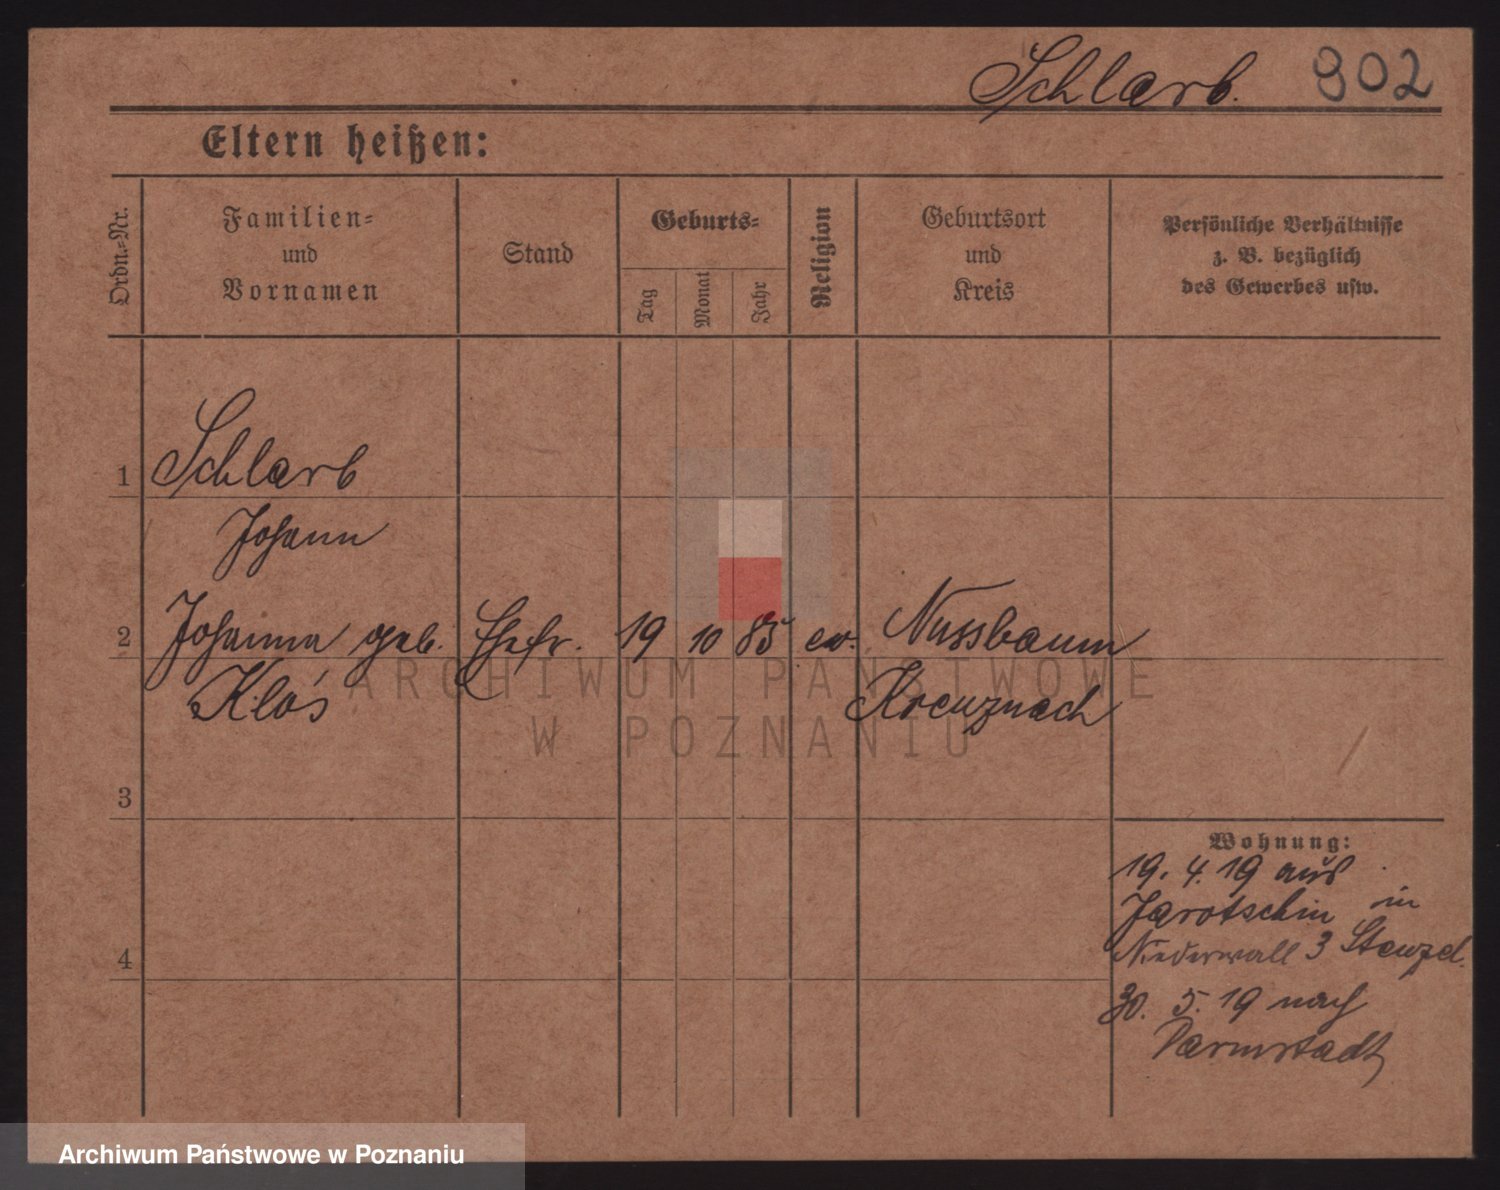 Schlarb. 902
Eltern heißen:
Ordn.-Nr.
Familien-
und
Vornamen
Stand
Geburts-
Tag
Monat
Jahr
Religion
Geburtsort
und
Kreis
Persönliche Verhältnisse
z. B. bezüglich
des Gewerbes usw.
1 Schlarb
Johann
2 Johanna geb. Ehefr. 19 10 85 ev. Nussbaum
Klos Kreuznach
3
4
Wohnung:
19. 4. 19 aus
Jarotschin in
Niederwall 3 Stenzel.
30. 5. 19 nach
Darmstadt
ARCHIWUM PAŃSTWOWE
W POZNANIU
Archiwum Państwowe w Poznaniu